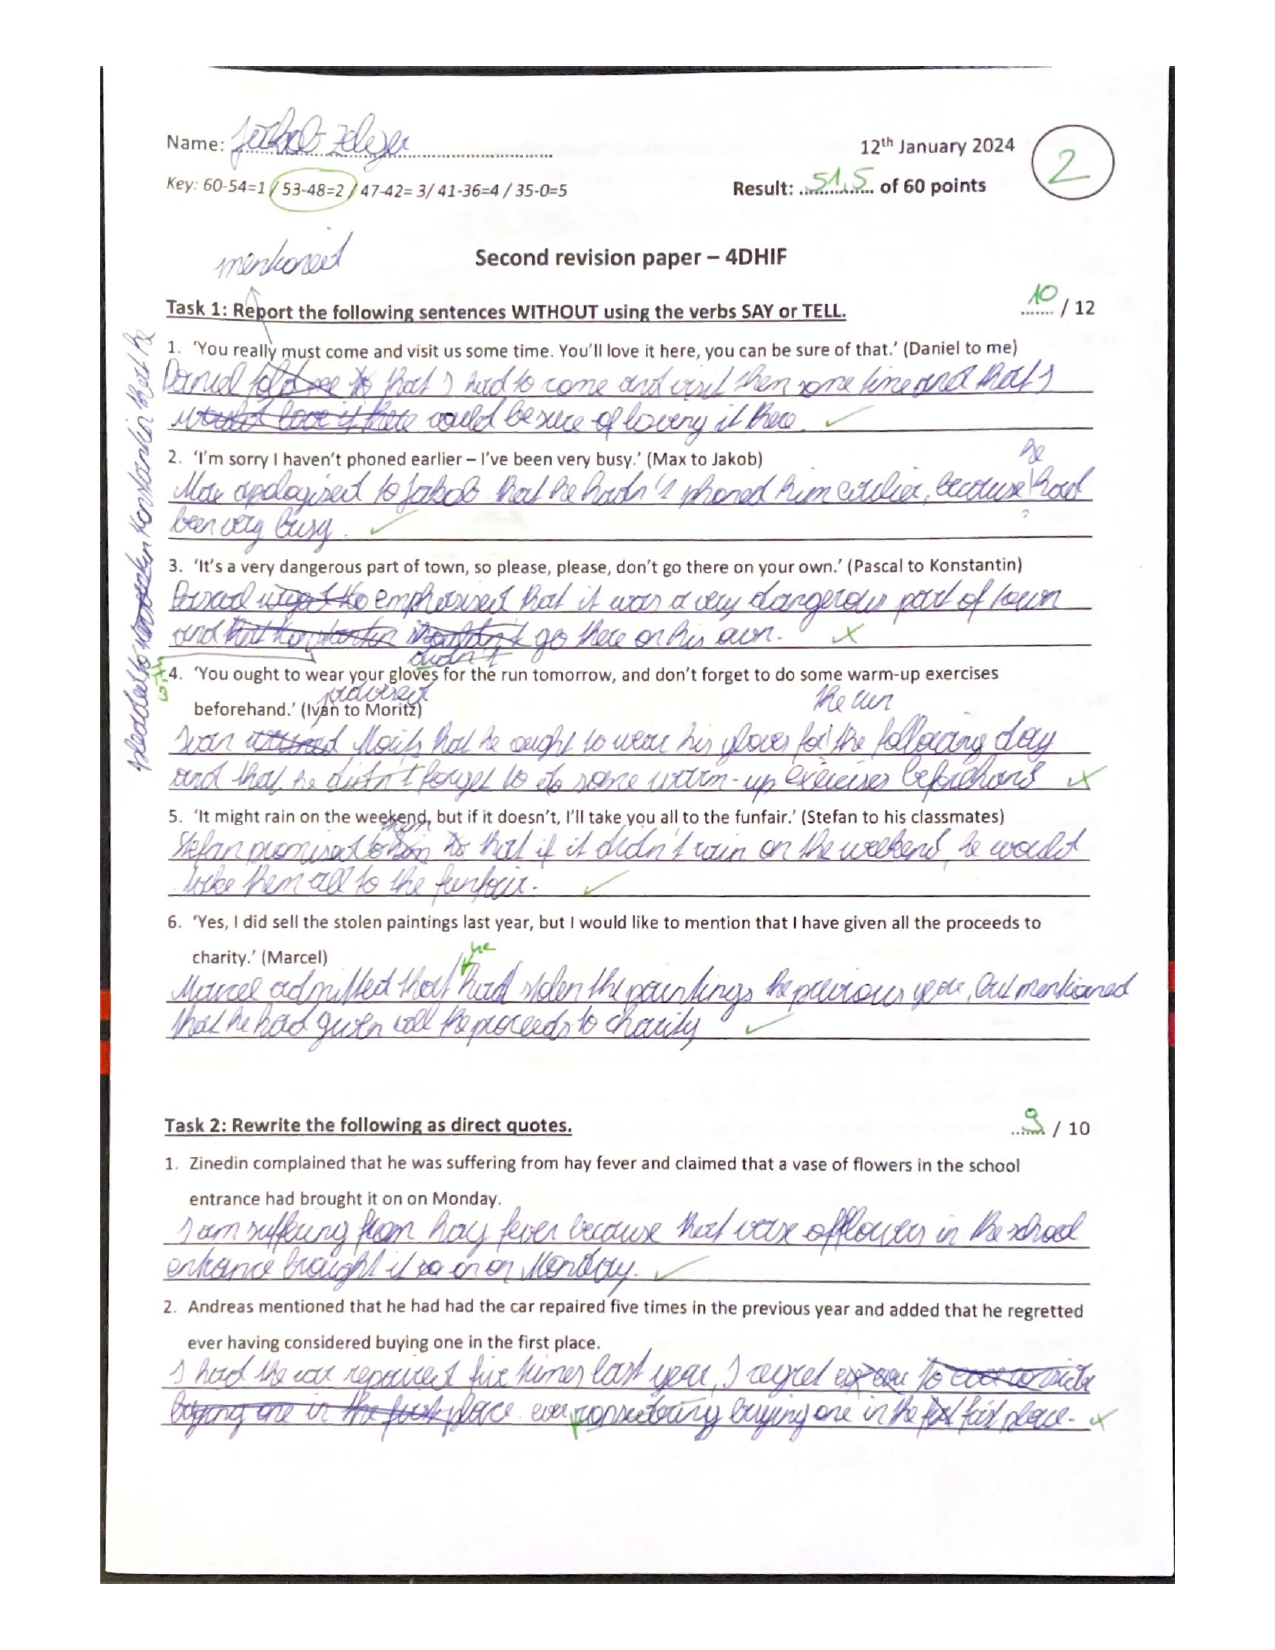 Name: 
12th January 2024
2
Key: 60-54=1 / 53-48=2 / 47-42= 3/ 41-36=4 / 35-0=5
Result: 51,5 of 60 points
mentioned
Second revision paper – 4DHIF
Task 1: Report the following sentences WITHOUT using the verbs SAY or TELL.
10 / 12
1. ‘You really must come and visit us some time. You’ll love it here, you can be sure of that.’ (Daniel to me)
Daniel that I had to come and visit them some time and that I
could be sure of loving it there.
2. ‘I’m sorry I haven’t phoned earlier – I’ve been very busy.’ (Max to Jakob)
he
Max apologised to Jakob that he hadn't phoned him earlier, because had
been very busy.
3. ‘It’s a very dangerous part of town, so please, please, don’t go there on your own.’ (Pascal to Konstantin)
Pascal emphasised that it was a very dangerous part of town
and go there on his own.
didn't
pleaded to Konstantin that he
4. ‘You ought to wear your gloves for the run tomorrow, and don’t forget to do some warm-up exercises
beforehand.’ (Ivan to Moritz)
advised
the run
Ivan Moritz that he ought to wear his gloves for the following day
and that he didn't forget to do some warm-up exercises beforehand
5. ‘It might rain on the weekend, but if it doesn’t, I’ll take you all to the funfair.’ (Stefan to his classmates)
them
Stefan promised that if it didn't rain on the weekend, he would
take them all to the funfair.
6. ‘Yes, I did sell the stolen paintings last year, but I would like to mention that I have given all the proceeds to
charity.’ (Marcel)
he
Marcel admitted that had stolen the paintings the previous year, but mentioned
that he had given all the proceeds to charity
Task 2: Rewrite the following as direct quotes.
9 / 10
1. Zinedin complained that he was suffering from hay fever and claimed that a vase of flowers in the school
entrance had brought it on on Monday.
I am suffering from hay fever because that vase of flowers in the school
entrance brought it on on Monday.
2. Andreas mentioned that he had had the car repaired five times in the previous year and added that he regretted
ever having considered buying one in the first place.
I had the car repaired five times last year, I regret
ever considering buying one in the first place.